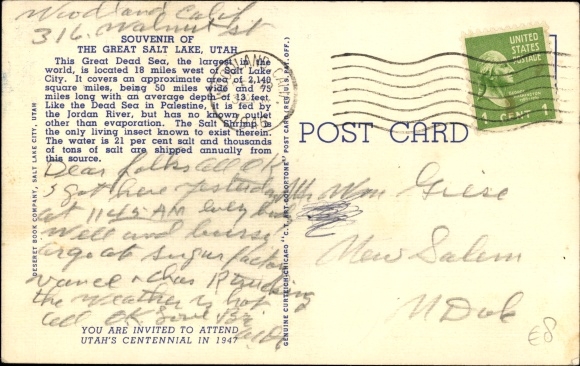 Woodland Calif
316. Walnut St
SOUVENIR OF
THE GREAT SALT LAKE, UTAH
This Great Dead Sea, the largest in the
world, is located 18 miles west of Salt Lake
City. It covers an approximate area of 2,140
square miles, being 50 miles wide and 75
miles long with an average depth of 13 feet.
Like the Dead Sea in Palestine, it is fed by
the Jordan River, but has no known outlet
other than evaporation. The Salt Shrimp is
the only living insect known to exist therein.
The water is 21 per cent salt and thousands
of tons of salt are shipped annually from
this source.
Dear folks all OK
I got here yesterday
at 11 45 AM every body
well and
at sugar factory
the weather is hot
all OK
YOU ARE INVITED TO ATTEND
UTAH'S CENTENNIAL IN 1947
DESERET BOOK COMPANY, SALT LAKE CITY, UTAH
GENUINE CURTEICH-CHICAGO "C.T. ART-COLORTONE" POST CARD (REG. U.S. PAT. OFF.)
POST CARD
UNITED
STATES
POSTAGE
1 CENT 1
Mr Wm Giese
New Salem
N Dak
€8